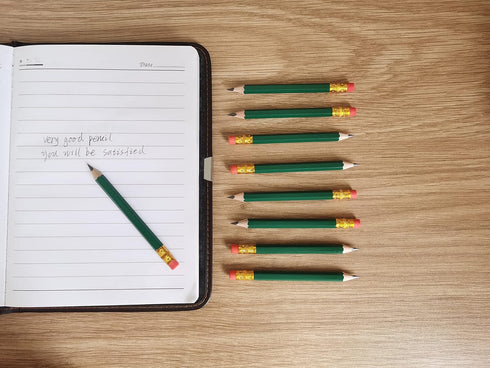 Date
very good pencil
you will be satisfied